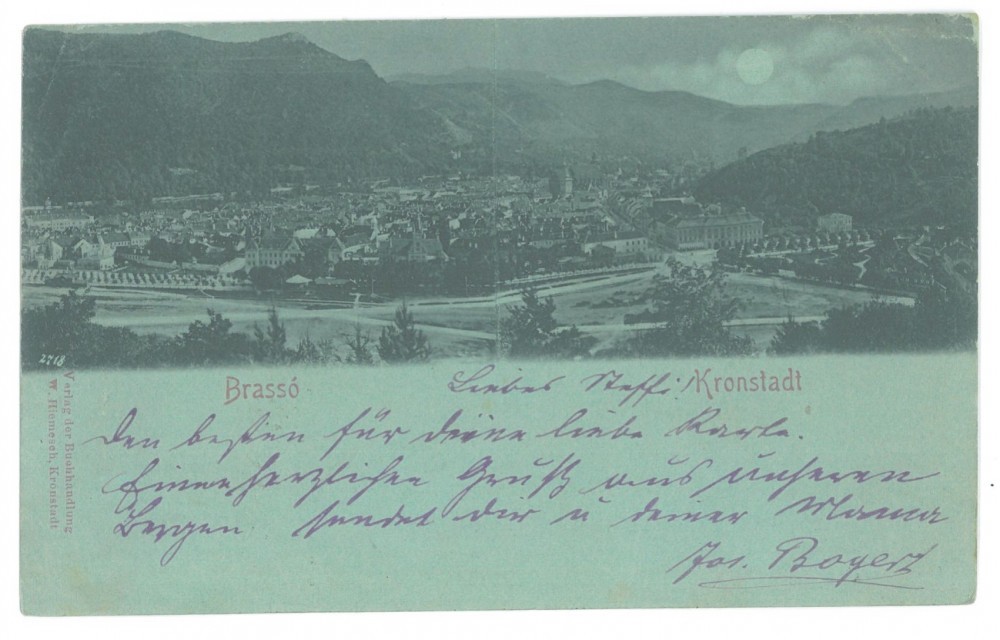 2718
Brassó
Kronstadt
Verlag der Buchhandlung
W. Hiemesch, Kronstadt
Liebes Steffi!
Den besten für deine liebe Karte.
Einen herzlichen Gruß aus unseren
Bergen sendet dir u deiner Mama
Jos.